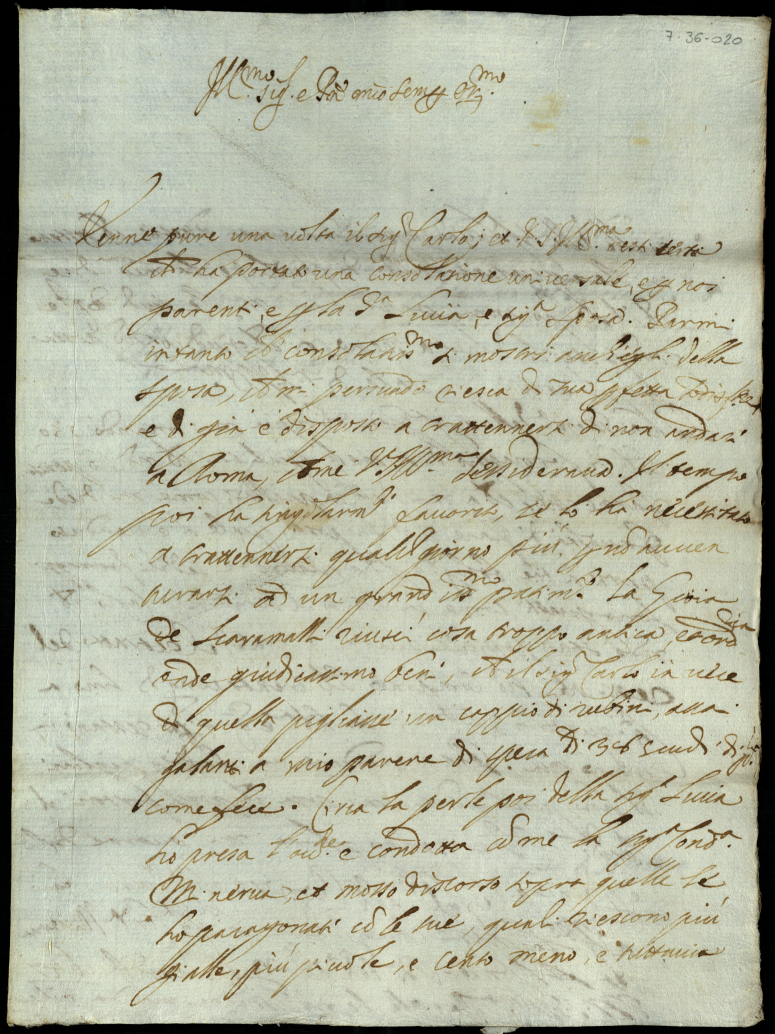 7-36-020
Ill.mo Sig. e Pad. mio semp. 
Venne pure una volta il Sig.r Carlo, et di V. S. Ill.ma
ch' ha portato una consolatione universale, e p noi
parenti, e p la S.a Livia, e Sig.r sposo. Parmi
intanto ch' consolatiss.mo si mostri anch' egli della
sposa, ch' mi persuado riesca di sua p.fetta
e di già è disposto a trattenersi di non andar
a Roma, come V. S. Ill.ma desiderava. Il tempo
poi ha singolarm.te favorito, se lo ha necessitato
a trattenersi qualche giorno più, p non avven
turarsi ad un grandiss.mo patim.to. La Gioia
de Scaramelli riuscì cosa troppo antica
onde giudicassimo bene, ch' il Sig.r Carlo in vece
di quella pigliasse un coppio di rubini, assai
galanti a mio parere di spesa di 36 scudi di
come fece. Circa la perle poi della Sig.ra Livia
ho presa e condotta con me la Sig.ra Cont.a
Minerva, et mosso discorso sopra quelle le
ho paragonati con le sue, quali riescono più
gialle, più piccole, e cento meno, e tuttavia